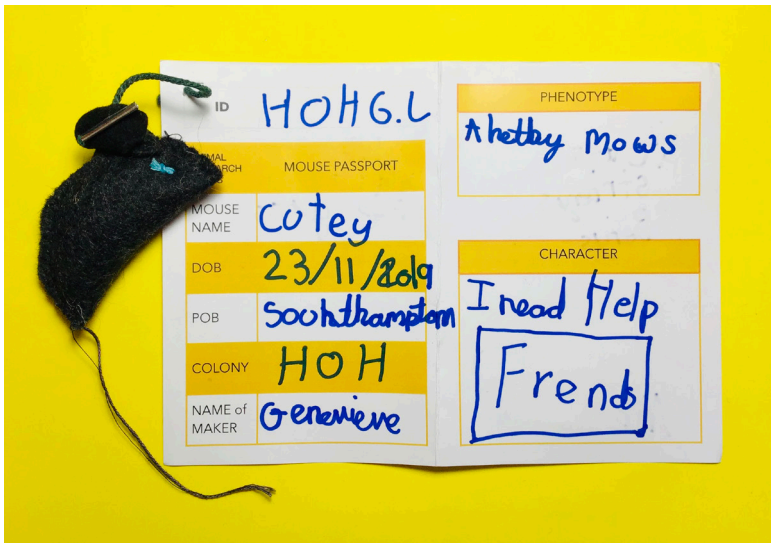 ID HOHG.L
MAL
RCH
MOUSE PASSPORT
MOUSE NAME cutey
DOB 23/11/2019
POB Souhthamptom
COLONY HOH
NAME of MAKER Genevieve
PHENOTYPE
Ahettey mows
CHARACTER
I nead Help
Frends